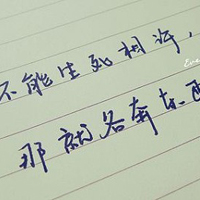 不能生死相许，
那就各奔东西